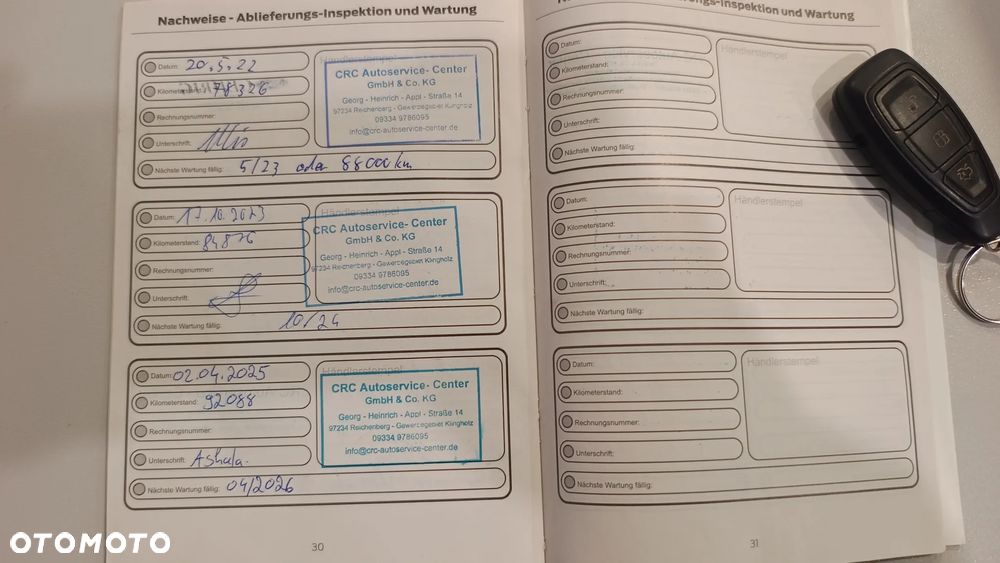 Nachweise - Ablieferungs-Inspektion und Wartung
Datum: 20.5.22
Kilometerstand: 78326
Rechnungsnummer:
Unterschrift:
Nächste Wartung fällig: 5/23 oder 88000 km
Händlerstempel
CRC Autoservice- Center
GmbH & Co. KG
Georg - Heinrich - Appl - Straße 14
97234 Reichenberg - Gewerbegebiet Klingholz
09334 9786095
info@crc-autoservice-center.de
Datum: 17.10.2023
Kilometerstand: 84876
Rechnungsnummer:
Unterschrift:
Nächste Wartung fällig: 10/24
Händlerstempel
CRC Autoservice- Center
GmbH & Co. KG
Georg - Heinrich - Appl - Straße 14
97234 Reichenberg - Gewerbegebiet Klingholz
09334 9786095
info@crc-autoservice-center.de
Datum: 02.04.2025
Kilometerstand: 92088
Rechnungsnummer:
Unterschrift:
Nächste Wartung fällig: 04/2026
Händlerstempel
CRC Autoservice- Center
GmbH & Co. KG
Georg - Heinrich - Appl - Straße 14
97234 Reichenberg - Gewerbegebiet Klingholz
09334 9786095
info@crc-autoservice-center.de
30
erungs-Inspektion und Wartung
Datum:
Kilometerstand:
Rechnungsnummer:
Unterschrift:
Nächste Wartung fällig:
Händlerstempel
Datum:
Kilometerstand:
Rechnungsnummer:
Unterschrift:
Nächste Wartung fällig:
Händlerstempel
Datum:
Kilometerstand:
Rechnungsnummer:
Unterschrift:
Nächste Wartung fällig:
Händlerstempel
31
OTOMOTO